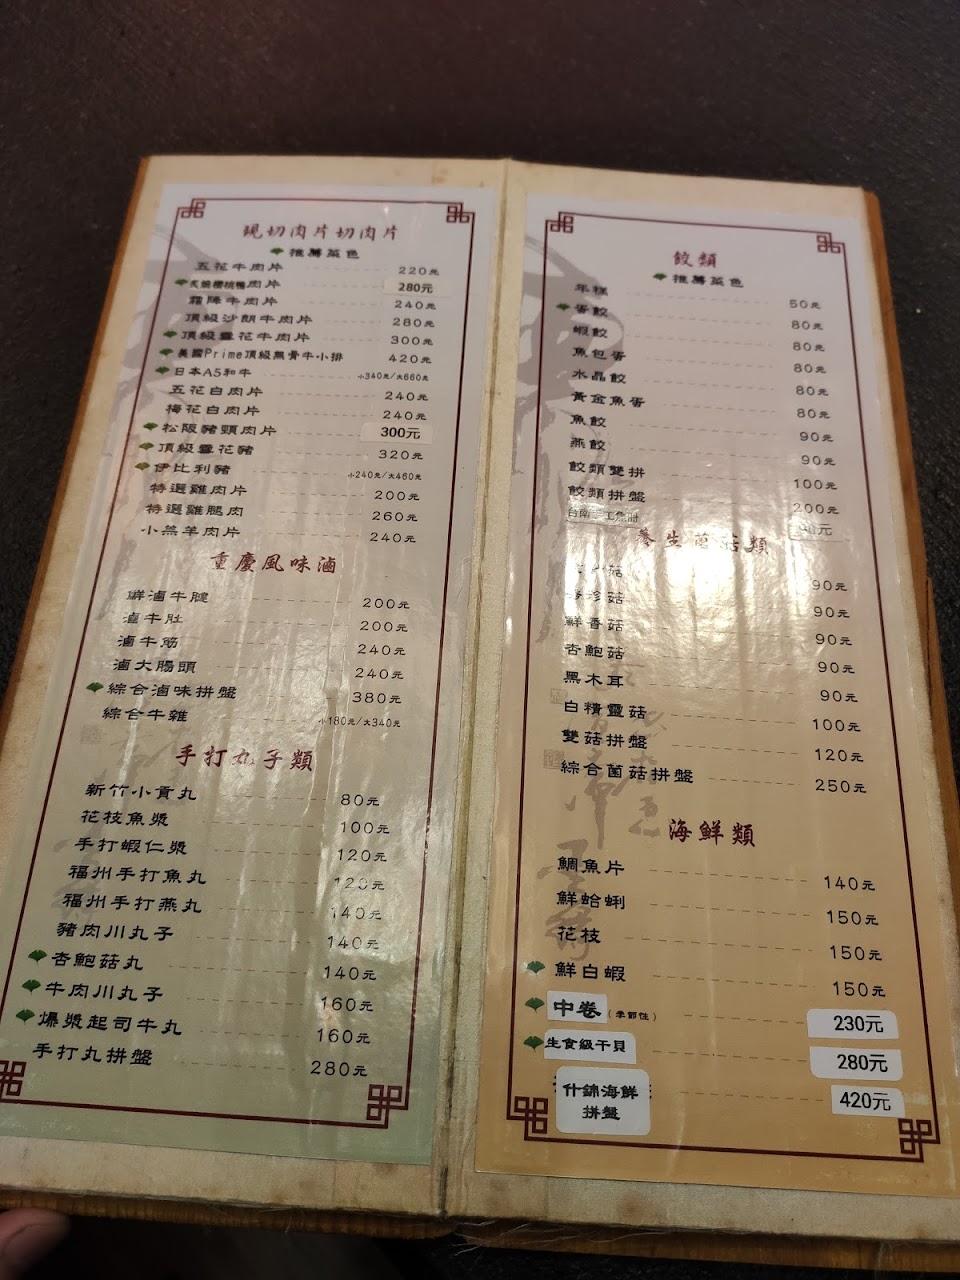 現切肉片切肉片
推薦菜色
五花牛肉片 220元
炙燒櫻桃鴨肉片 280元
霜降牛肉片 240元
頂級沙朗牛肉片 280元
頂級雪花牛肉片 300元
美國Prime頂級無骨牛小排 420元
日本A5和牛 小340元/大660元
五花白肉片 240元
梅花白肉片 240元
松阪豬頸肉片 300元
頂級雪花豬 320元
伊比利豬 小240元/大460元
特選雞肉片 200元
特選雞腿肉 260元
小羔羊肉片 240元
重慶風味滷
鮮滷牛腱 200元
滷牛肚 200元
滷牛筋 240元
滷大腸頭 240元
綜合滷味拼盤 380元
綜合牛雜 小180元/大340元
手打丸子類
新竹小貢丸 80元
花枝魚漿 100元
手打蝦仁漿 120元
福州手打魚丸 120元
福州手打燕丸 140元
豬肉川丸子 140元
杏鮑菇丸 140元
牛肉川丸子 160元
爆漿起司牛丸 160元
手打丸拼盤 280元
餃類
推薦菜色
年糕 50元
蛋餃 80元
蝦餃 80元
魚包蛋 80元
水晶餃 80元
黃金魚蛋 80元
魚餃 90元
燕餃 90元
餃類雙拼 100元
餃類拼盤 200元
養生菌菇類
菇 90元
珍菇 90元
鮮香菇 90元
杏鮑菇 90元
黑木耳 90元
白精靈菇 100元
雙菇拼盤 120元
綜合菌菇拼盤 250元
海鮮類
鯛魚片 140元
鮮蛤蜊 150元
花枝 150元
鮮白蝦 150元
中卷(季節性) 230元
生食級干貝 280元
什錦海鮮
拼盤 420元